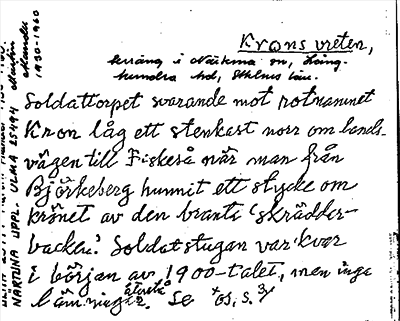 Kronsvreten,
terräng i Närtuna sn, Lång-
hundra hd, Sthlms län.
Soldattorpet svarande mot rotnamnet
Kron låg ett stenkast norr om lands-
vägen till Fiskeså när man från
Björkeberg hunnit ett stycke om
krönet av den branta 'skrädder-
backen.' Soldatstugan var kvar
i början av 1900-talet, men inga
lämningar återstå. Se
NÄRTUNA UPPL. ULMA 25494
Manfin
Mander
1930-1960